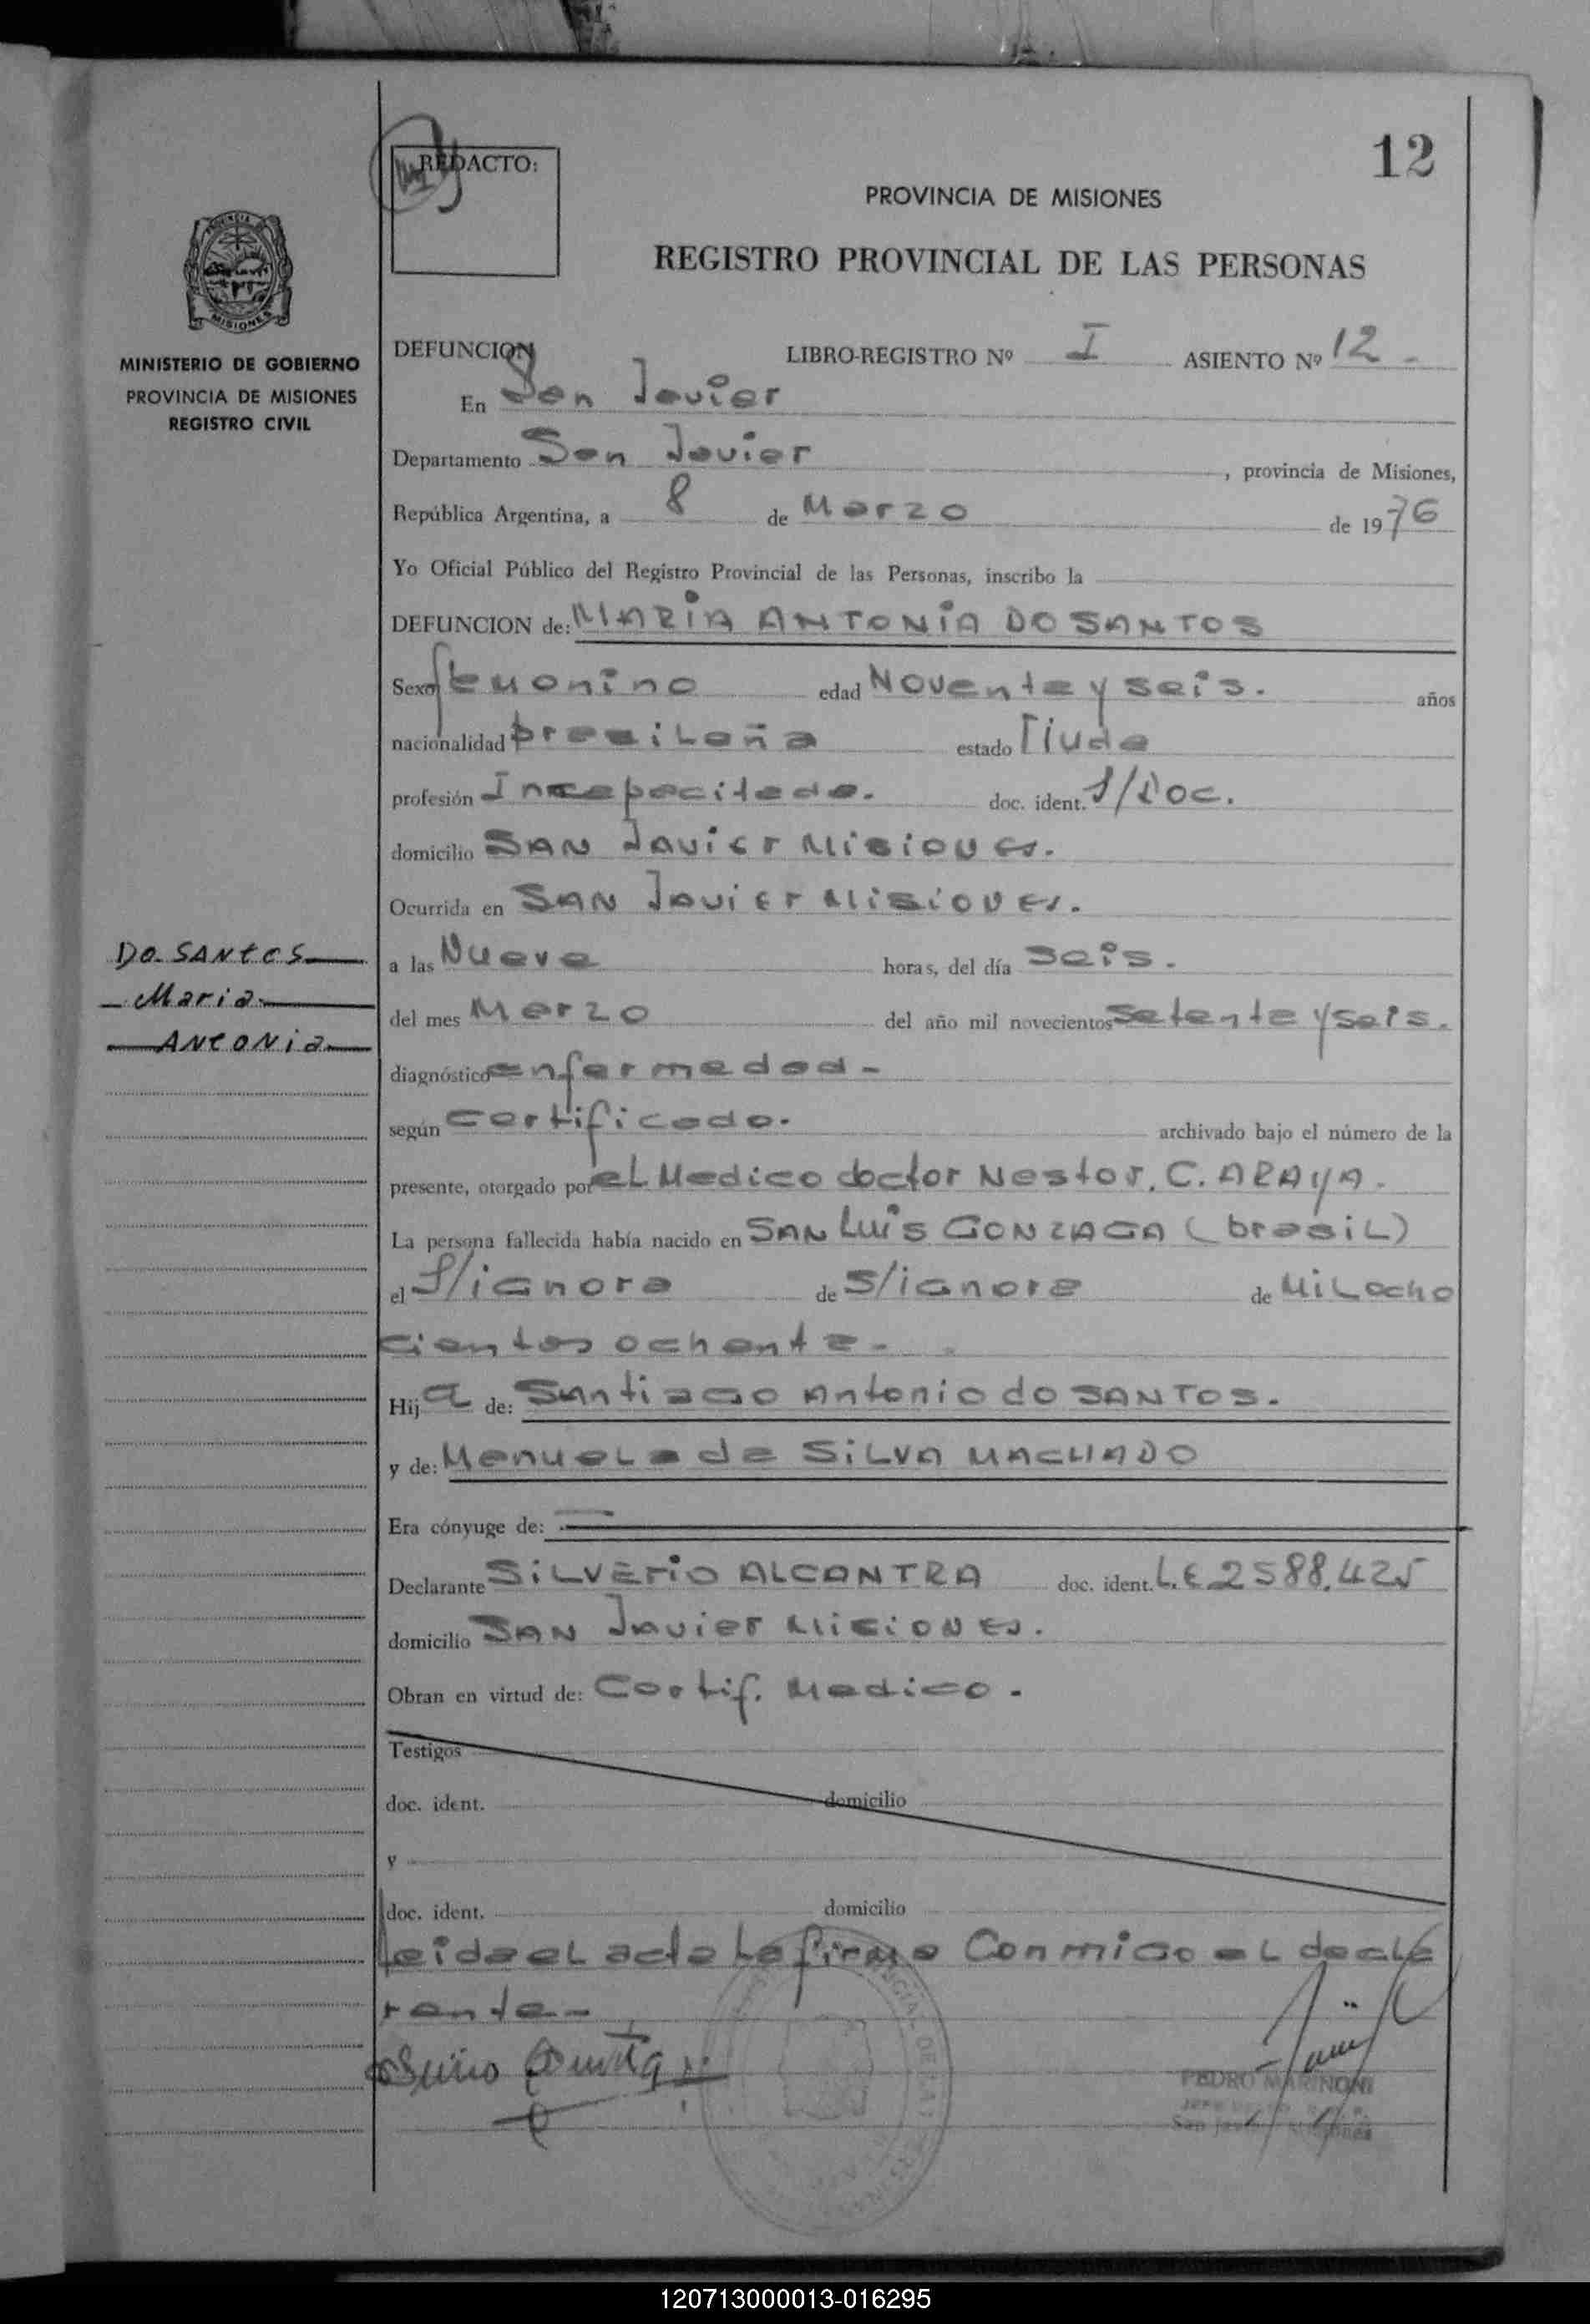 12
REDACTO:
PROVINCIA DE MISIONES
REGISTRO PROVINCIAL DE LAS PERSONAS
PROVINCIA
MISIONES
MINISTERIO DE GOBIERNO
PROVINCIA DE MISIONES
REGISTRO CIVIL
DEFUNCION LIBRO-REGISTRO Nº I ASIENTO Nº 12.
En San Javier
Departamento San Javier, provincia de Misiones,
República Argentina, a 8 de Marzo de 1976
Yo Oficial Público del Registro Provincial de las Personas, inscribo la
DEFUNCION de: MARIA ANTONIA DO SANTOS
Sexo femenino edad Noventa y seis. años
nacionalidad brasileña estado Viuda
profesión Incapacitada. doc. ident. S/Doc.
domicilio SAN Javier Misiones.
Ocurrida en SAN Javier Misiones.
Do. SANtOS
Maria
ANtONia
a las Nueve horas, del día seis.
del mes Marzo del año mil novecientos setenta y seis.
diagnóstico enfermedad -
según certificado. archivado bajo el número de la
presente, otorgado por el Medico doctor Nestor. C. ARAYA.
La persona fallecida había nacido en SAN Luis GONZAGA (brasil)
el S/ignora de S/ignora de Mil ocho
cientos ochenta -
Hija de: Santiago Antonio do SANTOS.
y de: Manuela de SILVA MACHADO
Era cónyuge de:
Declarante SILVERIO ALCANTRA doc. ident. L.E 2588.425
domicilio SAN Javier Misiones.
Obran en virtud de: Certif. Medico.
Testigos
doc. ident. domicilio
y
doc. ident. domicilio
Leida el acta la firma Conmigo el decla
rante -
PEDRO MARINONI
120713000013-016295